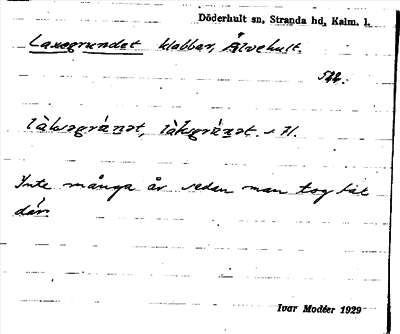 Döderhult sn, Stranda hd, Kalm. l.
Laxegrundet klabbar, Älvehult.
522.
làksəgránət, làksgránət. : H.
Inte många år sedan man tog lax
där.
Ivar Modéer 1929